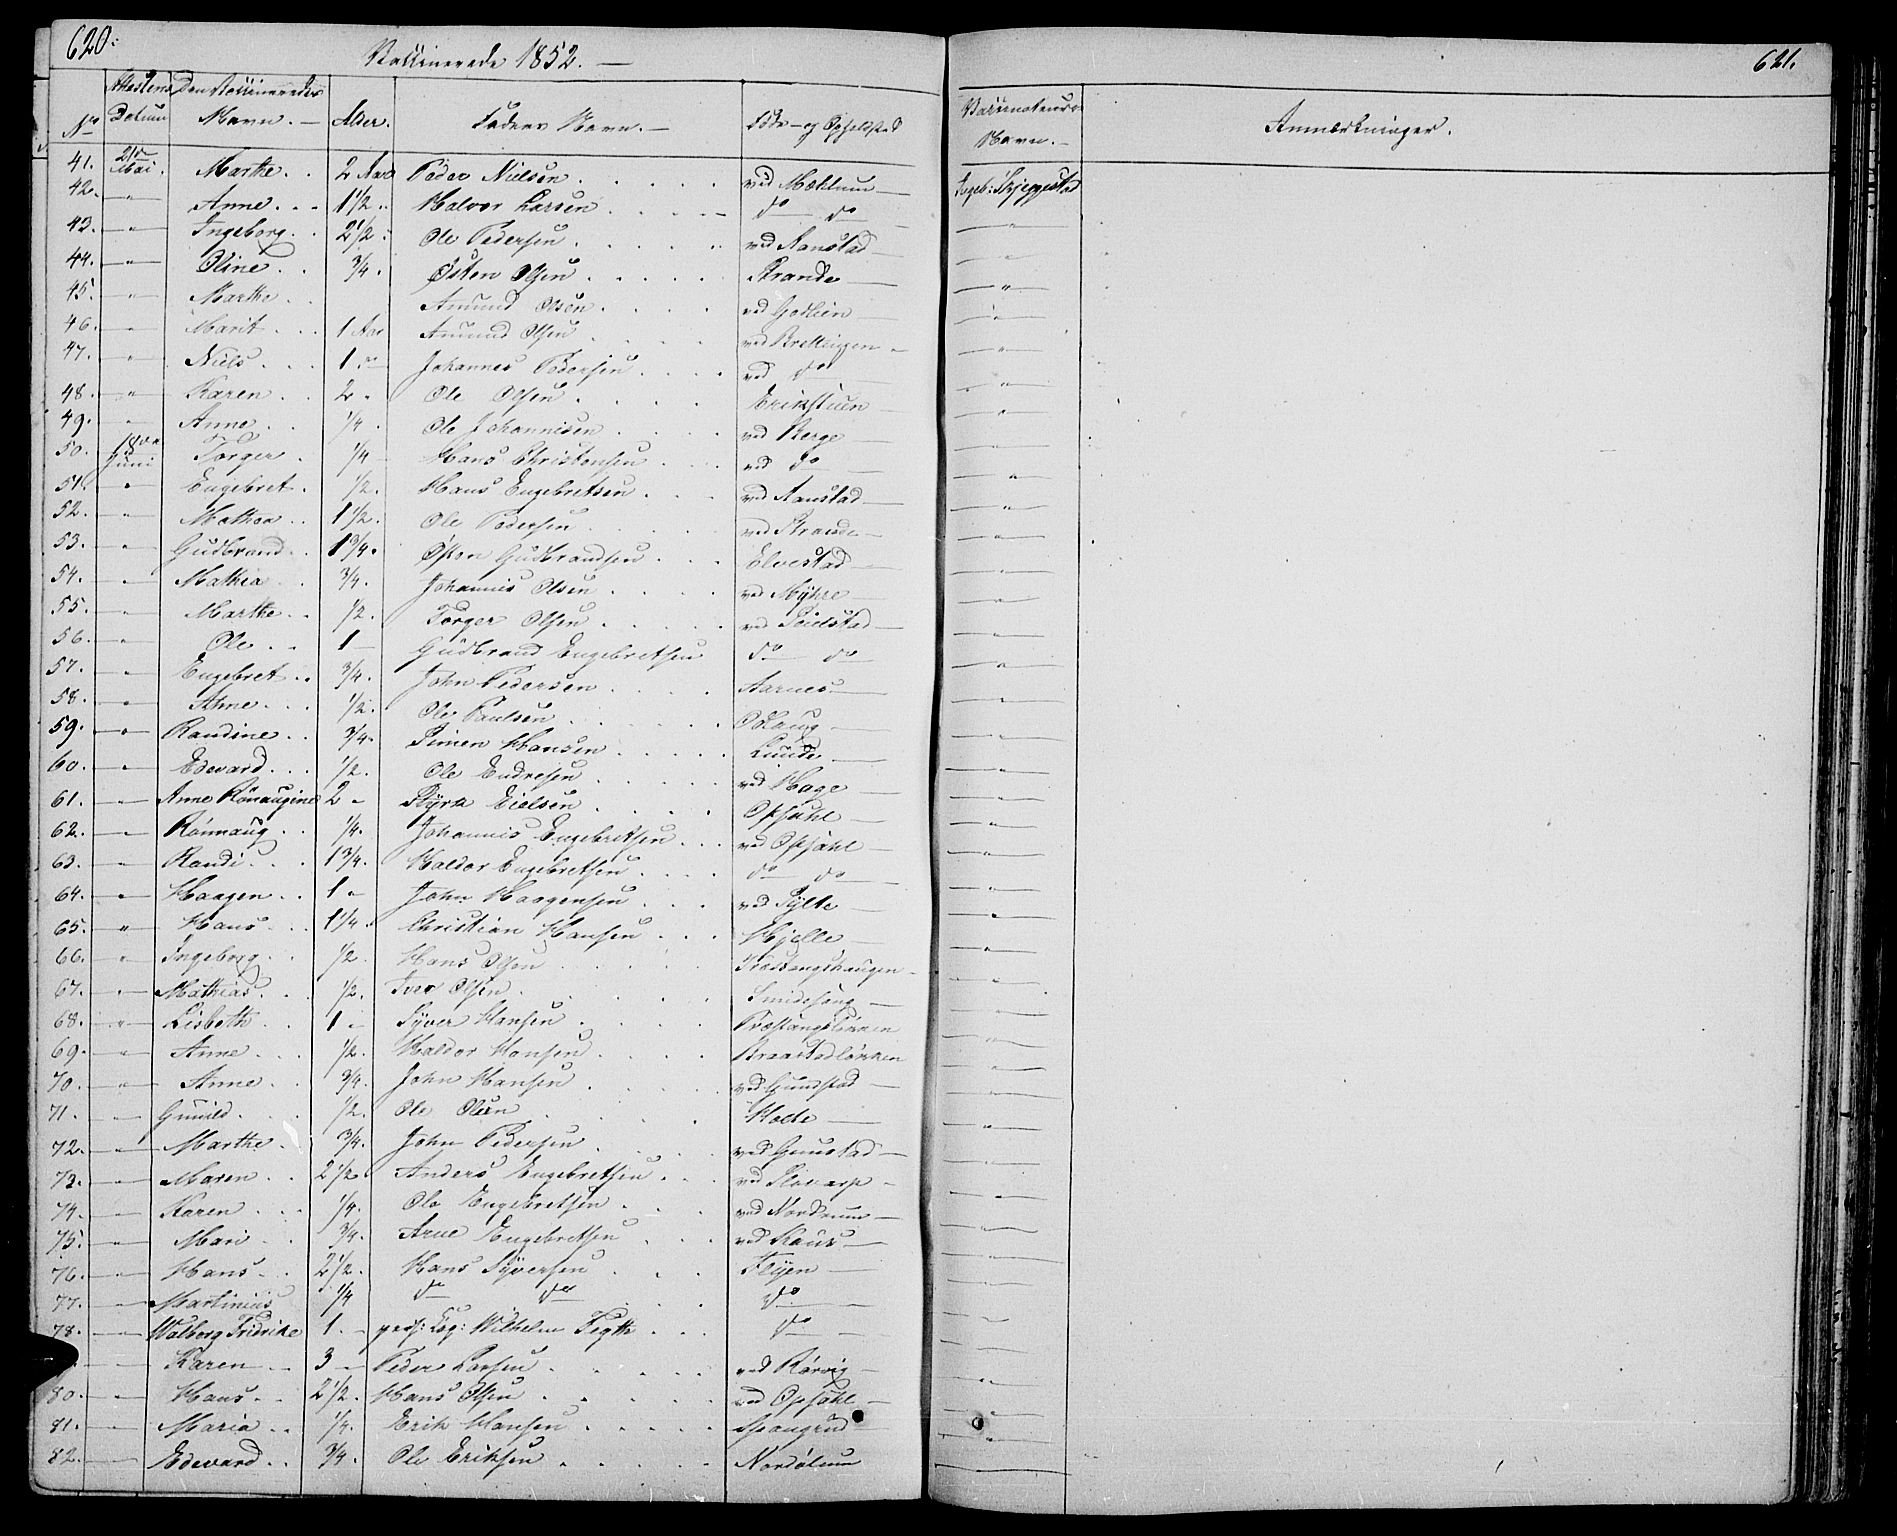 620.
Vaccinerede 1852. —
621.
No | Attestens Datum | Den Vaccineredes Navn. — | Alder. | Faders Navn. — | Føde- og Opholdsted | Vaccinateurens Navn. — | Anmærkninger.
41. 21de Mai. Marthe. . 2 Aar Peder Nielsen . . . . . ved Mæhlum — Ingeb: Skjeggestad
42. — Anne. . . 1 1/2 . . Halvor Larsen . . . . — do do
43. " Ingeborg. . 2 1/2 . Ole Pedersen . . . . . ved Aanstad — "
44. " Oline. . 3/4. Østen Olsen . . . . . Strande — "
45. " Marthe. . Amund Olsen . . . . ved — "
46. " Marit. . . 1 Aar Amund Olsen . . . . ved "
47. " Niels. . . 1 " Johannes Pedersen . . . . ved do "
48. " Karen. . 2 " Ole Olsen . . . . Erikstuen — "
49. " Anne. . . 1/4. Ole Johannesen . . . . ved Berge — "
50. 18de Juni Torger. 1/4 Hans Christensen . . . ved do — "
51. " Engebret. 1/2. Hans Engebretsen . . . ved Aanstad — "
52. " Mathea. . 1 1/2. Ole Pedersen . . . . ved Strande — "
53. " Gudbrand. . 1 3/4. Østen Gudbrandsen . . . Elvestad — "
54. " Mathea 3/4. Johannes Olsen . . . . ved Myhre — "
55. " Marthe. . 1/2. Torger Olsen . . . . . ved — "
56. " Ole. . . 1 — Gudbrand Engebretsen do do "
57. " Engebret. . 3/4. John Pedersen . . . . Aarnes — "
58. " Anne. . . 1/2. Ole Paulsen . . . . . Odlaug — "
59. " Randine. . 3/4. Simen Hansen . . . . . Lunde — "
60. " Edevard. . . 1/2. Ole Endresen . . . . ved Hage — "
61. " Anne Rønnaugine 2 " Styrk Eielsen . . . . Opsahl — "
62. " Rønnaug. . . 1/4. Johannes Engebretsen . . . ved Opsahl — "
63. " Randi. . . 1 3/4. Haldor Engebretsen . . . . do do "
64. " Haagen. . . 1 " John Haagensen . . . ved Sylte — "
65. " Hans. . . 1 1/4. Christian Hansen . . . Hjelle — "
66. " Ingeborg. . 1/2. Hans Olsen . . . . "
67. " Mathias. . . 1/2. Iver Olsen . . . . . Smidesang — "
68. " Lisbeth. . . 1 " Syver Hansen . . . . . Præstangsløkken "
69. " Anne. . . 1/2. Haldor Hansen . . . . Braastadløkken "
70. " Anne. . 3/4. John Hansen . . . . ved Gunstad — "
71. " Gunild. . . 1/2. Ole Olsen . . . . Holte — "
72. " Marthe. . 3/4. John Pedersen . . . . ved Gunstad — "
73. " Maren. . . 2 1/2. Anders Engebretsen . . . ved — "
74. " Karen . . . 1/4. Ole Engebretsen . . . ved Nordrum — "
75. " Mari . . 3/4. Arne Engebretsen . . . ved — "
76. " Hans. . . 2 1/2. Hans Syversen . . . Flyen — "
77. " Martinius 1/4 do do . . do — "
78. " Walborg Fridrike 1. — Wilhelm Fegth . . . do — "
Karen — . . 3 " Peder Larsen . . . . . ved Rørvig — "
80. " Hans. . . 2 1/2. Hans Olsen . . . . . ved Opsahl — "
81. " Maria. . . 1/4. Erik Hansen . . . . . Spangrud "
82. — Edevard. . . 3/4. Ole Eriksen . . . . . —